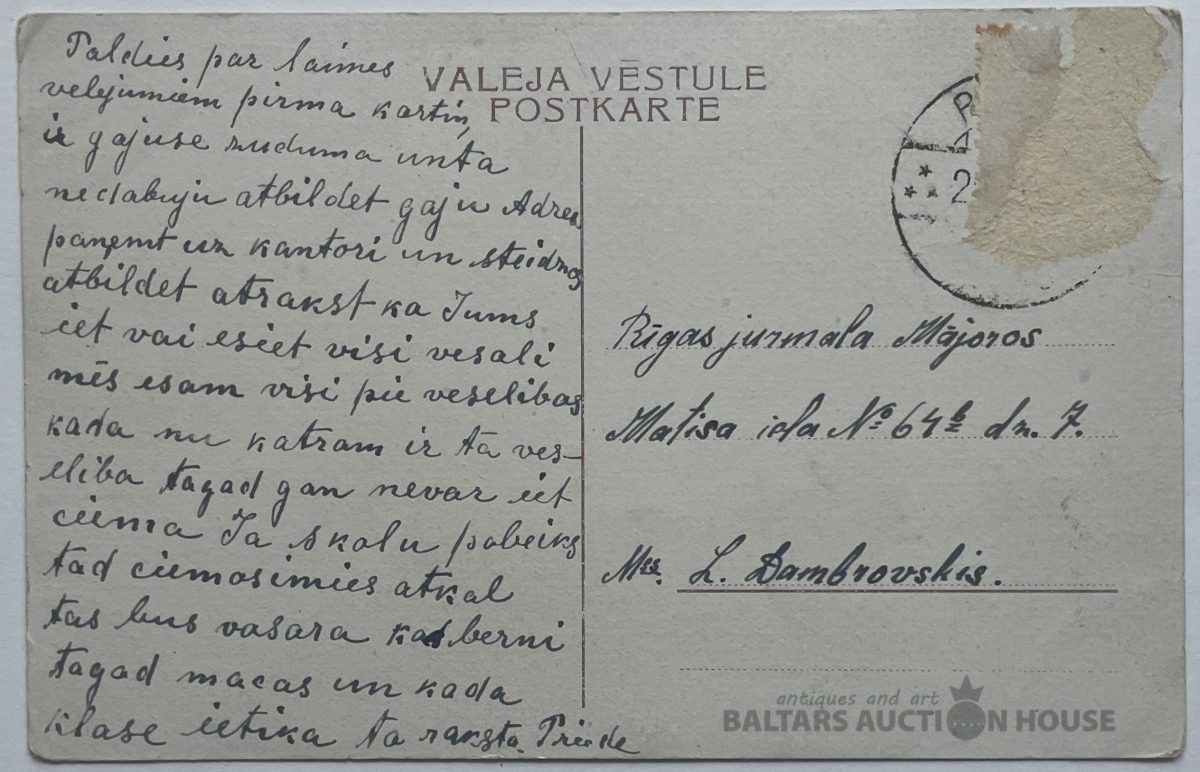 Paldies par laimes
velejumiem pirma kartiņ
ir gajuse zuduma unta
nedabuju atbildet gaju Adres
paņemt uz kantori un steidzos
atbildet atrakst ka Jums
iet vai esiet visi vesali
mēs esam visi pie veselibas
kada nu katram ir ta ves-
eliba tagad gan nevar iet
ciema Ja skolu pabeiks
tad ciemosimies atkal
tas bus vasara kad berni
tagad macas un kada
klase ietika ta raksta. Priede
VALEJA VĒSTULE
POSTKARTE
R
2
Rīgas jurmala Mājoros
Matisa iela № 64b dz. 7.
L. Dambrovskis.
antiques and art
BALTARS AUCTION HOUSE